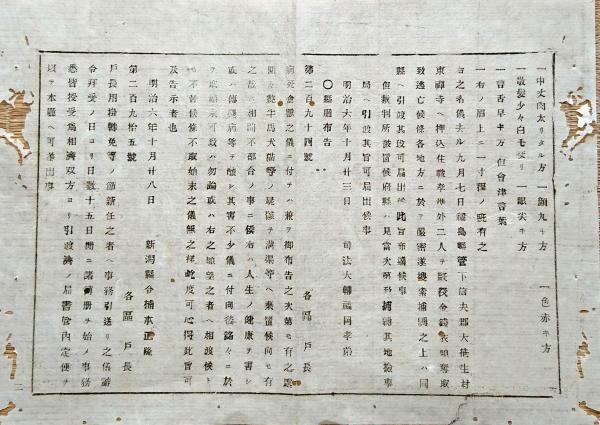 一中丈肉太リタル方 一顔丸キ方 一色赤キ方
一散髪少々白毛交リ 一眼尖キ方
一言舌早キ方 但會津言葉
一右ノ眉上ニ一寸程ノ疵有之
右之者儀去ル九月七日福島縣管下信夫郡大笹生村
東禪寺ヘ押込住職孝準外二人ヲ殺害金錢衣類奪取
致逃亡候條各地方ニ於テ嚴密遂搜索捕縛之上ハ同
縣ヘ引渡其段可届出候此旨布達候事
但裁判所設置候府縣ハ見當次第捕縛其地檢事
局ヘ引渡其旨可届出候事
明治六年十月廿三日 司法大輔福岡孝弟
〇縣廳布告
第二百九十四號 各區戸長
病死禽獸之儀ニ付テハ兼テ御布告之次第モ有之處
間々斃牛馬犬猫等ノ屍骸ヲ溝渠等ヘ棄置候向モ有
之哉ニ相聞不都合ノ事ニ候右ハ人生ノ健康ヲ害シ
或ハ傳染病等ヲ釀シ其害不少儀ニ付向後銘々ニ於
テ取始末可致ハ勿論或ハ右之願望之者ヘ相渡候ト
モ不苦候條不取始末之儀無之樣屹度可心得此旨可
及告示者也
明治六年十月廿八日 新潟縣令楠本正隆
第二百九拾五號 各區戸長
戸長用掛轉免等ノ節新任之者ヘ事務引送リ之儀辭
令拜受ノ日ヨリ日數十五日間ニ諸簿册ヲ始メ事務
悉皆授受爲相濟双方ヨリ引渡濟ノ届書管内定便ヲ
以テ本廳ヘ可差出事